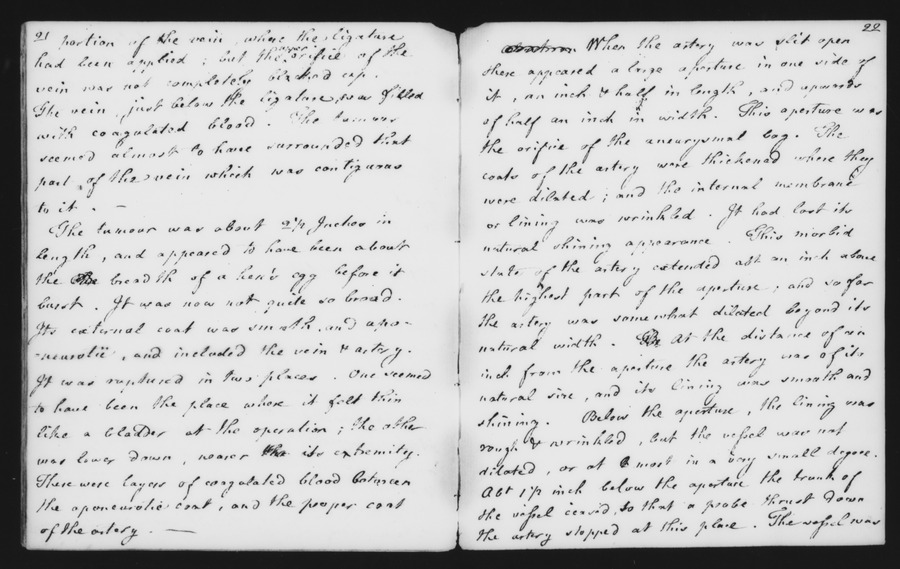 21
portion of the vein, where the ligature
had been applied; but the upper orifice of the
vein was not completely blocked up.
The vein just below the ligature, was filled
with coagulated blood. The tumour
seemed almost to have surrounded that
part of the vein which was contiguous
to it. —
The tumour was about 2 1/2 Inches in
length, and appeared to have been about
the breadth of a hen's egg before it
burst. It was now not quite so broad.
Its external coat was smooth, and apo-
-neurotic, and included the vein & artery.
It was ruptured in two places. One seemed
to have been the place where it felt thin
like a bladder at the operation; the other
was lower down, nearer its extremity.
There were layers of coagulated blood between
the aponeurotic coat, and the proper coat
of the artery. —
22
When the artery was slit open
there appeared a large aperture in one side of
it, an inch & half in length, and upwards
of half an inch in width. This aperture was
the orifice of the aneurysmal bag. The
coats of the artery were thickened where they
were dilated; and the internal membrane
or lining was wrinkled. It had lost its
natural shining appearance. This morbid
state of the artery extended abt an inch above
the highest part of the aperture; and so far
the artery was somewhat dilated beyond its
natural width. At the distance of an
inch from the aperture the artery was of its
natural size, and its lining was smooth and
shining. Below the aperture, the lining was
rough & wrinkled, but the vessel was not
dilated, or at most in a very small degree.
Abt 1 1/2 inch below the aperture the trunk of
the vessel ceased, so that a probe thrust down
the artery stopped at this place. The vessel was